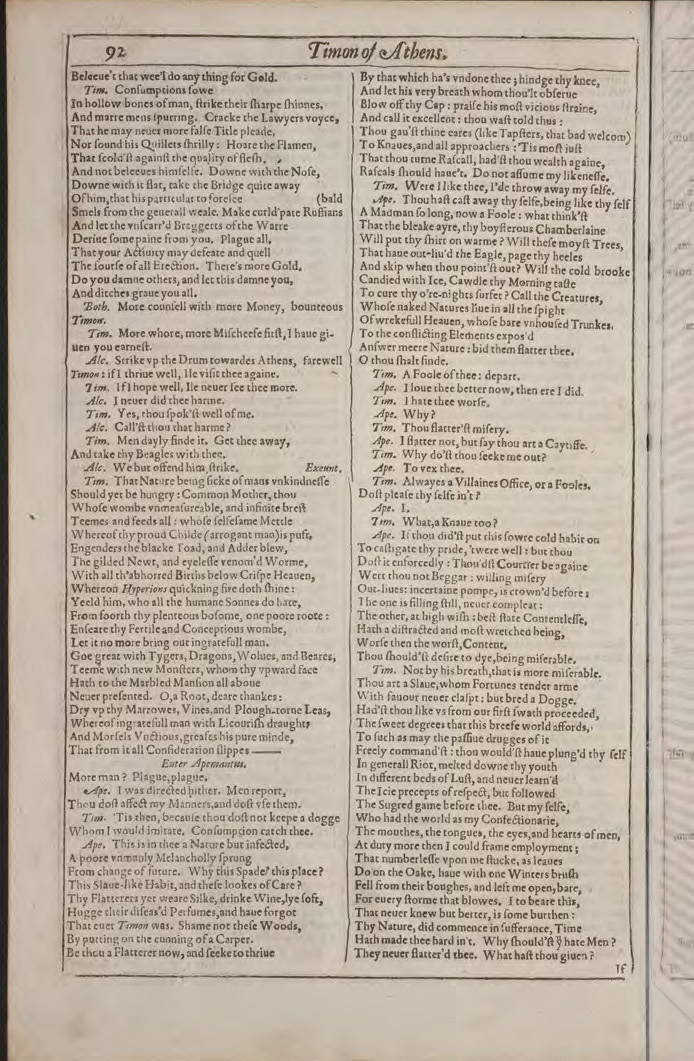 92
Timon of Athens.
Beleeue't that wee'l do any thing for Gold.
Tim. Consumptions sowe
In hollow bones of man, strike their sharpe shinnes,
And marre mens spurring. Cracke the Lawyers voyce,
That he may neuer more false Title pleade,
Nor sound his Quillets shrilly: Hoare the Flamen,
That scold'st against the quality of flesh,
And not beleeues himselfe. Downe with the Nose,
Downe with it flat, take the Bridge quite away
Of him, that his particular to foresee (bald
Smels from the generall weale. Make curld'pate Ruffians
And let the vnscarr'd Braggerts of the Warre
Deriue some paine from you. Plague all,
That your Actiuity may defeate and quell
The sourse of all Erection. There's more Gold,
Do you damne others, and let this damne you,
And ditches graue you all.
Both. More counsell with more Money, bounteous
Timon.
Tim. More whore, more Mischeefe first, I haue gi-
uen you earnest.
Alc. Strike vp the Drum towardes Athens, farewell
Timon: if I thriue well, Ile visit thee againe.
Tim. If I hope well, Ile neuer see thee more.
Alc. I neuer did thee harme.
Tim. Yes, thou spok'st well of me.
Alc. Call'st thou that harme?
Tim. Men dayly finde it. Get thee away,
And take thy Beagles with thee.
Alc. We but offend him, strike. Exeunt.
Tim. That Nature being sicke of mans vnkindnesse
Should yet be hungry: Common Mother, thou
Whose wombe vnmeasureable, and infinite brest
Teemes and feeds all: whose selfesame Mettle
Whereof thy proud Childe (arrogant man) is puft,
Engenders the blacke Toad, and Adder blew,
The gilded Newt, and eyelesse venom'd Worme,
With all th'abhorred Births below Crispe Heauen,
Whereon Hyperions quickning fire doth shine:
Yeeld him, who all the humane Sonnes do hate,
From foorth thy plenteous bosome, one poore roote:
Enseare thy Fertile and Conceptious wombe,
Let it no more bring out ingratefull man.
Goe great with Tygers, Dragons, Wolues, and Beares,
Teeme with new Monsters, whom thy vpward face
Hath to the Marbled Mansion all aboue
Neuer presented. O, a Root, deare thankes:
Dry vp thy Marrowes, Vines, and Plough-torne Leas,
Whereof ingratefull man with Licourish draughts
And Morsels Vnctious, greases his pure minde,
That from it all Consideration slippes ——
Enter Apemantus.
More man? Plague, plague.
Ape. I was directed hither. Men report,
Thou dost affect my Manners, and dost vse them.
Tim. 'Tis then, because thou dost not keepe a dogge
Whom I would imitate. Consumption catch thee.
Ape. This is in thee a Nature but infected,
A poore vnmanly Melancholly sprung
From change of future. Why this Spade? this place?
This Slaue-like Habit, and these lookes of Care?
Thy Flatterers yet weare Silke, drinke Wine, lye soft,
Hugge their diseas'd Perfumes, and haue forgot
That euer Timon was. Shame not these Woods,
By putting on the cunning of a Carper.
Be thou a Flatterer now, and seeke to thriue
By that which ha's vndone thee; hindge thy knee,
And let his very breath whom thou'lt obserue
Blow off thy Cap: praise his most vicious straine,
And call it excellent: thou wast told thus:
Thou gau'st thine eares (like Tapsters, that bad welcom)
To Knaues, and all approachers: 'Tis most iust
That thou turne Rascall, had'st thou wealth againe,
Rascals should haue't. Do not assume my likenesse.
Tim. Were I like thee, I'de throw away my selfe.
Ape. Thou hast cast away thy selfe, being like thy self
A Madman so long, now a Foole: what think'st
That the bleake ayre, thy boysterous Chamberlaine
Will put thy shirt on warme? Will these moyst Trees,
That haue out-liu'd the Eagle, page thy heeles
And skip when thou point'st out? Will the cold brooke
Candied with Ice, Cawdle thy Morning taste
To cure thy o're-nights surfet? Call the Creatures,
Whose naked Natures liue in all the spight
Of wrekefull Heauen, whose bare vnhoused Trunkes,
To the conflicting Elements expos'd
Answer meere Nature: bid them flatter thee.
O thou shalt finde.
Tim. A Foole of thee: depart.
Ape. I loue thee better now, then ere I did.
Tim. I hate thee worse.
Ape. Why?
Tim. Thou flatter'st misery.
Ape. I flatter not, but say thou art a Caytiffe.
Tim. Why do'st thou seeke me out?
Ape. To vex thee.
Tim. Alwayes a Villaines Office, or a Fooles.
Dost please thy selfe in't?
Ape. I.
Tim. What, a Knaue too?
Ape. If thou did'st put this sowre cold habit on
To castigate thy pride, 'twere well: but thou
Dost it enforcedly: Thou'dst Courtier be againe
Wert thou not Beggar: willing misery
Out-liues: incertaine pompe, is crown'd before:
The one is filling still, neuer compleat:
The other, at high wish: best state Contentlesse,
Hath a distracted and most wretched being,
Worse then the worst, Content.
Thou should'st desire to dye, being miserable.
Tim. Not by his breath, that is more miserable.
Thou art a Slaue, whom Fortunes tender arme
With fauour neuer claspt: but bred a Dogge.
Had'st thou like vs from our first swath proceeded,
The sweet degrees that this breefe world affords,
To such as may the passiue drugges of it
Freely command'st: thou would'st haue plung'd thy self
In generall Riot, melted downe thy youth
In different beds of Lust, and neuer learn'd
The Icie precepts of respect, but followed
The Sugred game before thee. But my selfe,
Who had the world as my Confectionarie,
The mouthes, the tongues, the eyes, and hearts of men,
At duty more then I could frame employment;
That numberlesse vpon me stucke, as leaues
Do on the Oake, haue with one Winters brush
Fell from their boughes, and left me open, bare,
For euery storme that blowes. I to beare this,
That neuer knew but better, is some burthen:
Thy Nature, did commence in sufferance, Time
Hath made thee hard in't. Why should'st yͧ hate Men?
They neuer flatter'd thee. What hast thou giuen?
If